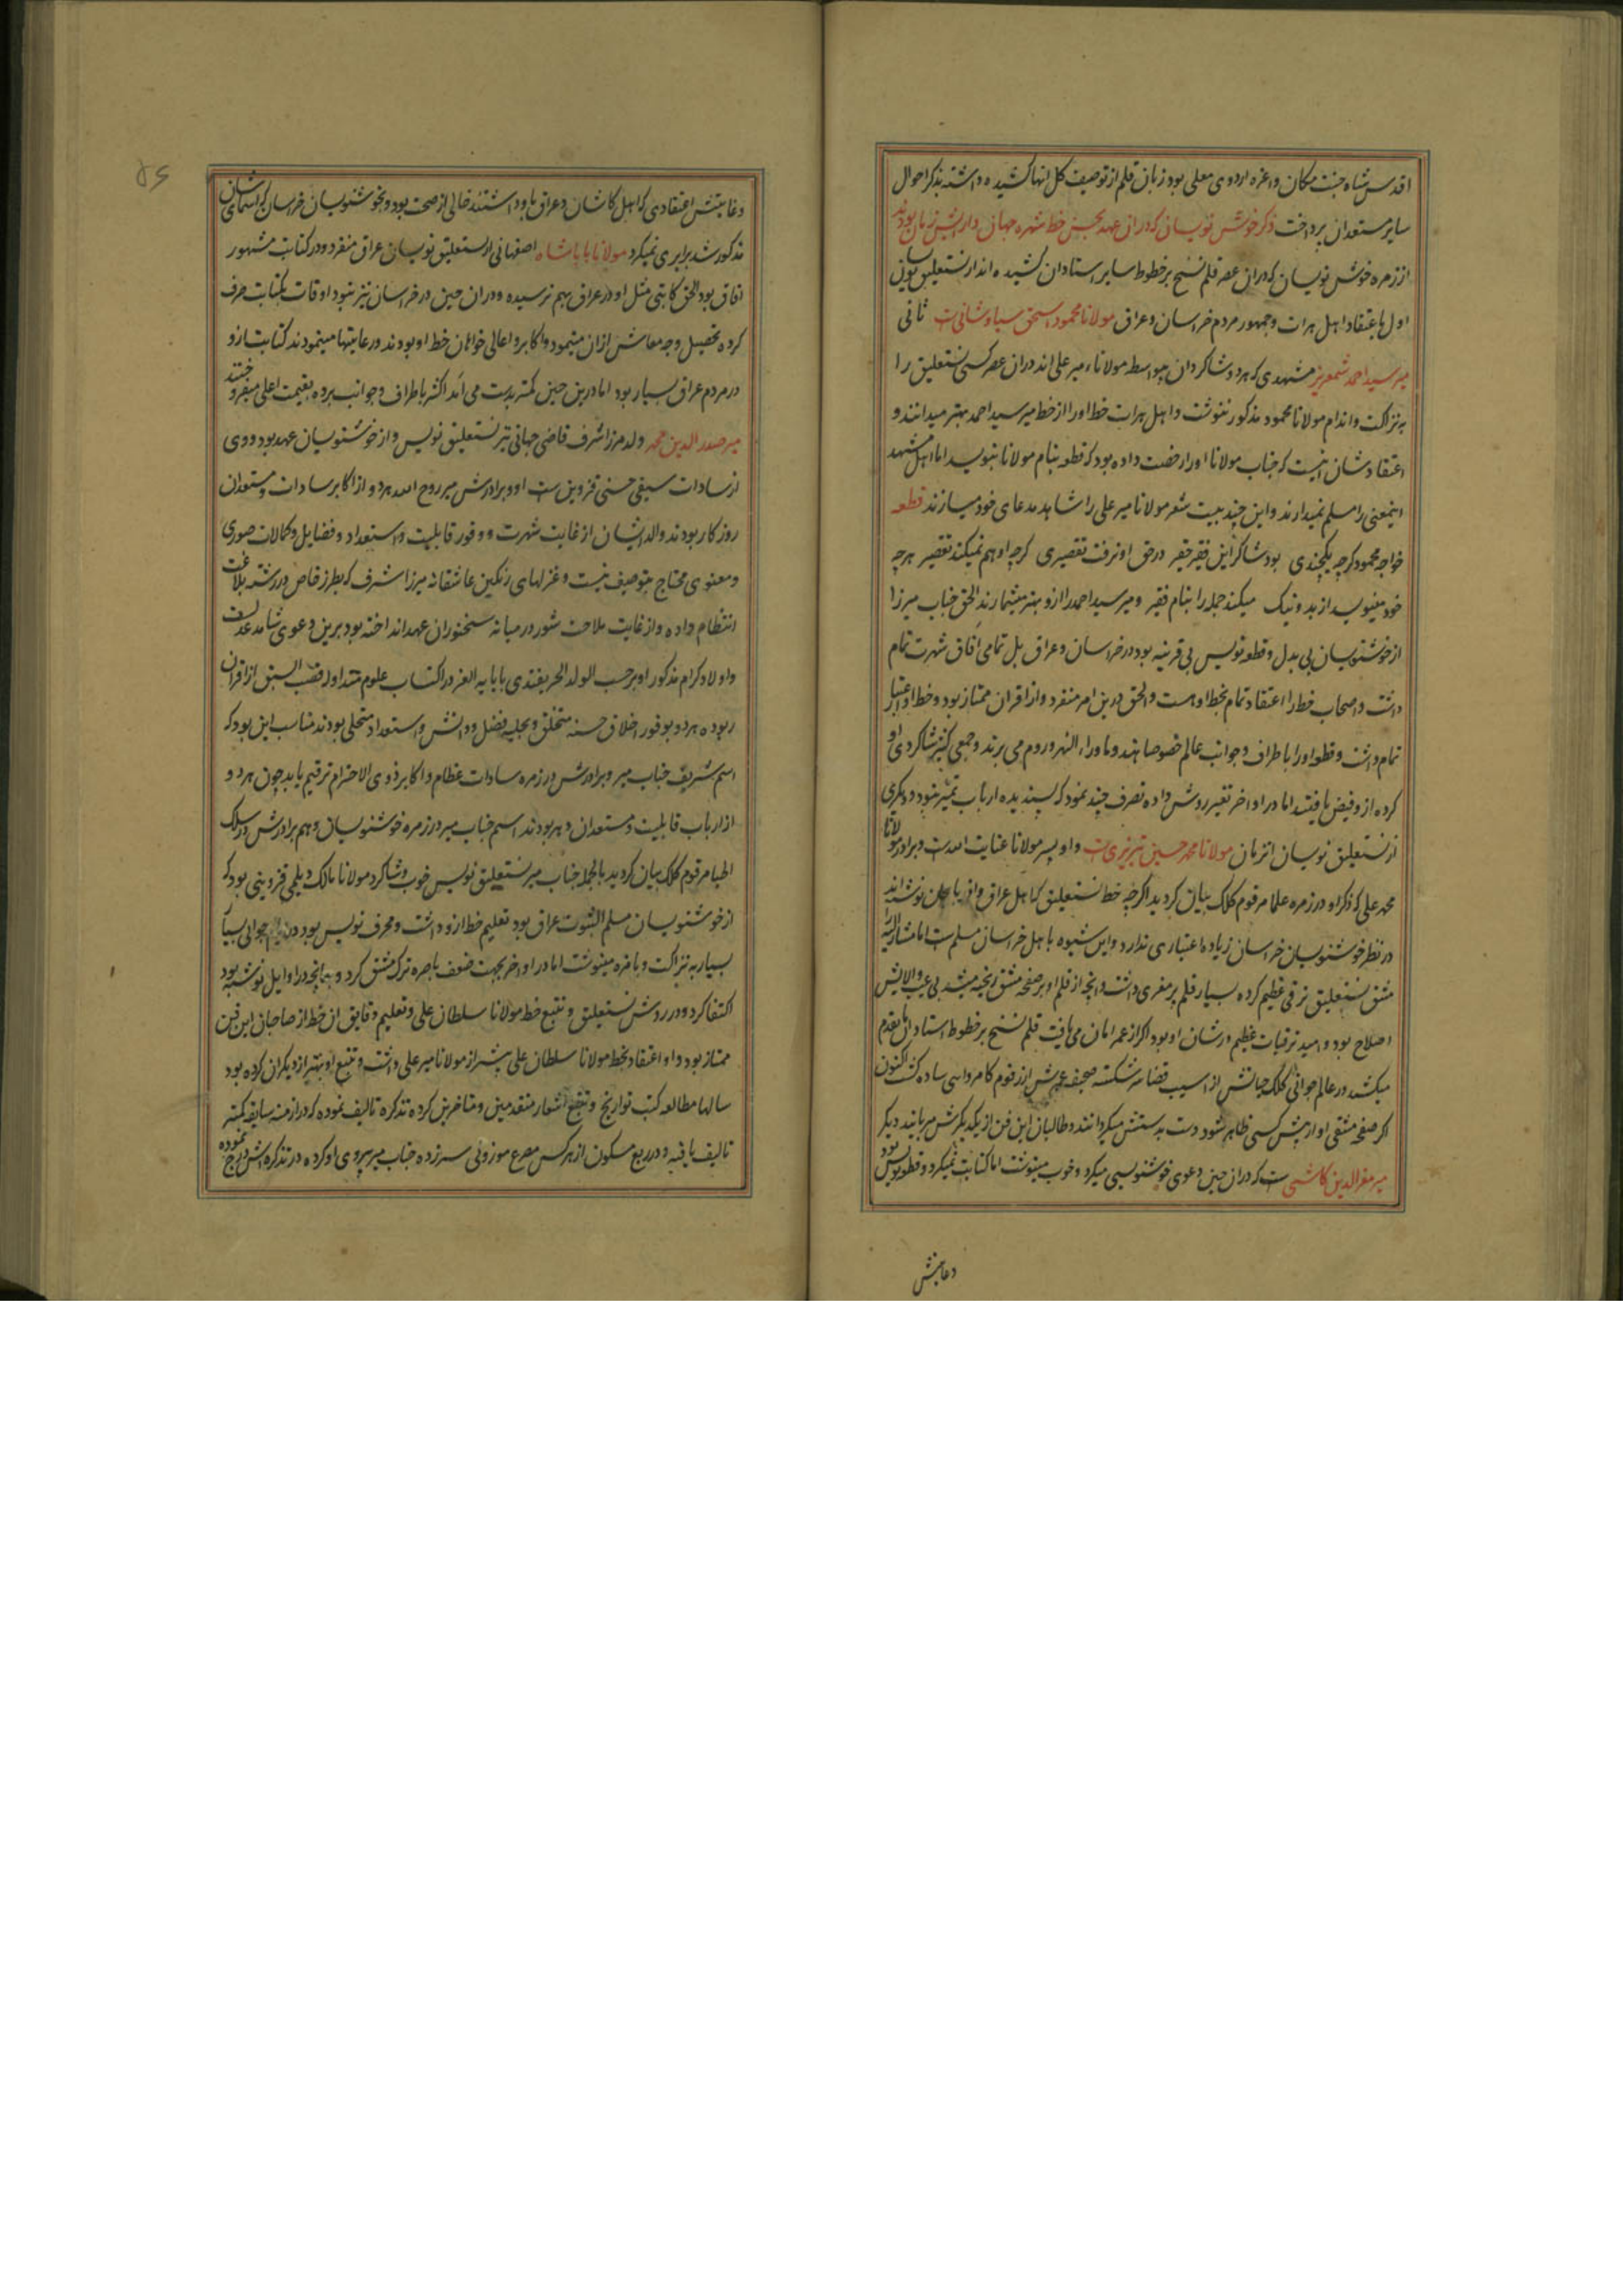 اقدس شاه جنت مکان و اعزه اردوی معلی بود زبان قلم از توصیف کل انها کشیده داشته بذکر احوال
سایر مستعدان پرداخت ذکر خوش نویسان که دران عهد بحسن خط شهره جهان و از زمان بودند
از زمره خوش نویسان که دران عصر قلم نسخ بر خطوط سایر استادان کشیده اند از نستعلیق نویسان
اول باعتقاد اهل هرات و جمهور مردم خراسان و عراق مولانا محمود اسحق سیاوشانی ست ثانی
میر سید احمد مشهدی که هر دو شاکردان بیواسطه مولانا میر علی اند دران عصر کسی نستعلیق را
به نزاکت و اندام مولانا محمود مذکور ننوشت و اهل هرات خط او را از خط میر سید احمد بهتر میدانند و
اعتقادشان اینست که جناب مولانا او را رخصت داده بود که قطعه بنام مولانا بنویسد اما اهل مشهد
اینمعنی را مسلم نمیدارند و این چند بیت شعر مولانا میر علی را شاهد مدعای خود میسازند قطعه
خواجه محمود کرچه یکچندی بود شاکرد این فقیر حقیر در حق او نرفت تقصیری کرچه او هم نمیکند تقصیر هرچه
خود مینویسد از بد و نیک میکند جمله را بنام فقیر و میر سید احمد را ازو بهتر میشمارند الحق جناب میرزا
از خوشنویسان بی بدل و قطعه نویس بی قرینه بود در خراسان و عراق بل تمامی افاق شهرت تمام
داشت و اصحاب خط را اعتقاد تمام بخط او هست و الحق درین امر منفرد و از اقران ممتاز بود و خط او اعتبار
تمام داشت و قطعه او را باطراف و جوانب عالم خصوصا هند و ماوراء النهر و روم می بردند و جمعی کثیر شاکردی او
کرده از و فیض یافتند اما در اواخر تغییر روش داده تصرف چند نمود که پسندیده ارباب تمیز نبود و دیکری
از نستعلیق نویسان انزمان مولانا محمد حسین تبریزی ست و او پسر مولانا عنایت الله ست و برادر مولانا
محمد علی که ذکر او در زمره علما مرقوم کلک بیان کردید اکرچه خط نستعلیق که اهل عراق و اذربایجان نوشته اند
در نظر خوشنویسان خراسان زیاده اعتباری ندارد و این شیوه باهل خراسان مسلم ست اما مشارالیه
مشق نستعلیق ترقی عظیم کرده بسیار قلم پر مغزی داشت و انچه از قلم او بر صفحه مشق ریخته میشد بی عیب و الایش
اصلاح بود و امید ترقیات عظیم در شان او بود اکر از عمر امان می یافت قلم نسخ بر خطوط استادان ما تقدم
میکشید در عالم جوانی کلک حیاتش از اسیب قضا سر شکسته صحیفه عمرش از رقوم کامروایی ساده کشت اکنون
اکر صفحه مشقی او از پیش کسی ظاهر شود دست بدستش میکردانند و طالبان این فن از یکدیکرش میربایند دیکر
میر معز الدین کاشی ست که دران حین دعوی خوشنویسی میکرد و خوب مینوشت اما کتابت نمیکرد و قطعه نویس بود
و غایتش
و غایتش اعتقادی که اهل کاشان و عراق باو داشتند خالی از صحت بود و بخوشنویسان خراسان که اسمای ایشان
مذکور شد برابری نمیکرد مولانا بابا شاه اصفهانی از نستعلیق نویسان عراق منفرد و در کتابت مشهور
افاق بود الحق کاتبی مثل او در عراق بهم نرسیده و دران حین در خراسان نیز نبود اوقات بکتابت صرف
کرده تحصیل وجه معاش ازان مینمود و اکابر و اعالی خواهان خط او بودند و رعایتها مینمودند کتابتها ازو
در مردم عراق بسیار بود اما درین حین کمتر بدست می آمد اکثر باطراف و جوانب برده بقیمت اعلی میفروختند
میر صدر الدین محمد ولد میرزا شرف قاضی جهانی نیز نستعلیق نویس و از خوشنویسان عهد بود و وی
از سادات سیفی حسنی قزوین ست او و برادرش میر روح الله هر دو از اکابر سادات و مستعدان
روزکار بودند والد ایشان از غایت شهرت و وفور قابلیت و استعداد و فضایل و کمالات صوری
و معنوی محتاج بتوصیف نیست و غزلهای رنکین عاشقانه میرزا شرف که بطرز خاص در رشته بلاغت
انتظام داده و از غایت ملاحت شور در میانه سخنوران عهد انداخته بود برین دعوی شاهد عدلست
و اولاد کرام مذکور او برحسب الولد الحر یقتدی بابایه الغر در اکتساب علوم متداوله قصب السبق از اقران
ربوده هر دو بوفور اخلاق حسنه متخلق و بحلیه فضل و دانش و استعداد متحلی بودند مناسب این بود که
اسم شریف جناب میر و برادرش در زمره سادات عظام و اکابر ذوی الاحترام ترقیم یابد چون هر دو
از ارباب قابلیت و مستعدان دهر بودند اسم جناب میر در زمره خوشنویسان و هم برادرش در سلک
اطبا مرقوم کلک بیان کردید بالجمله جناب میر نستعلیق نویس خوب و شاکرد مولانا مالک دیلمی قزوینی بود که
از خوشنویسان مسلم الثبوت عراق بود تعلیم خط ازو داشت و محرف نویس بود در ایام جوانی بسیار
بسیار به نزاکت و بامزه مینوشت اما در اواخر بجهت ضعف باصره ترک مشق کرد و بهمانچه در اوایل نوشته بود
اکتفا کرد و در روش نستعلیق و تتبع خط مولانا سلطان علی و تعلیم دقایق ان خط از صاحبان این فن
ممتاز بود و او اعتقاد بخط مولانا سلطان علی بیشتر از مولانا میر علی داشت و تتبع او بهتر از دیکران کرده بود
سالها مطالعه کتب تواریخ و تتبع اشعار متقدمین و متاخرین کرده تذکره تالیف نموده که در ازمنه سابقه کمتر
تالیف یافته و در ربع مسکون از هر کس مصرع موزونی سر زده جناب میر پیروی او کرده در تذکره اش درج نموده